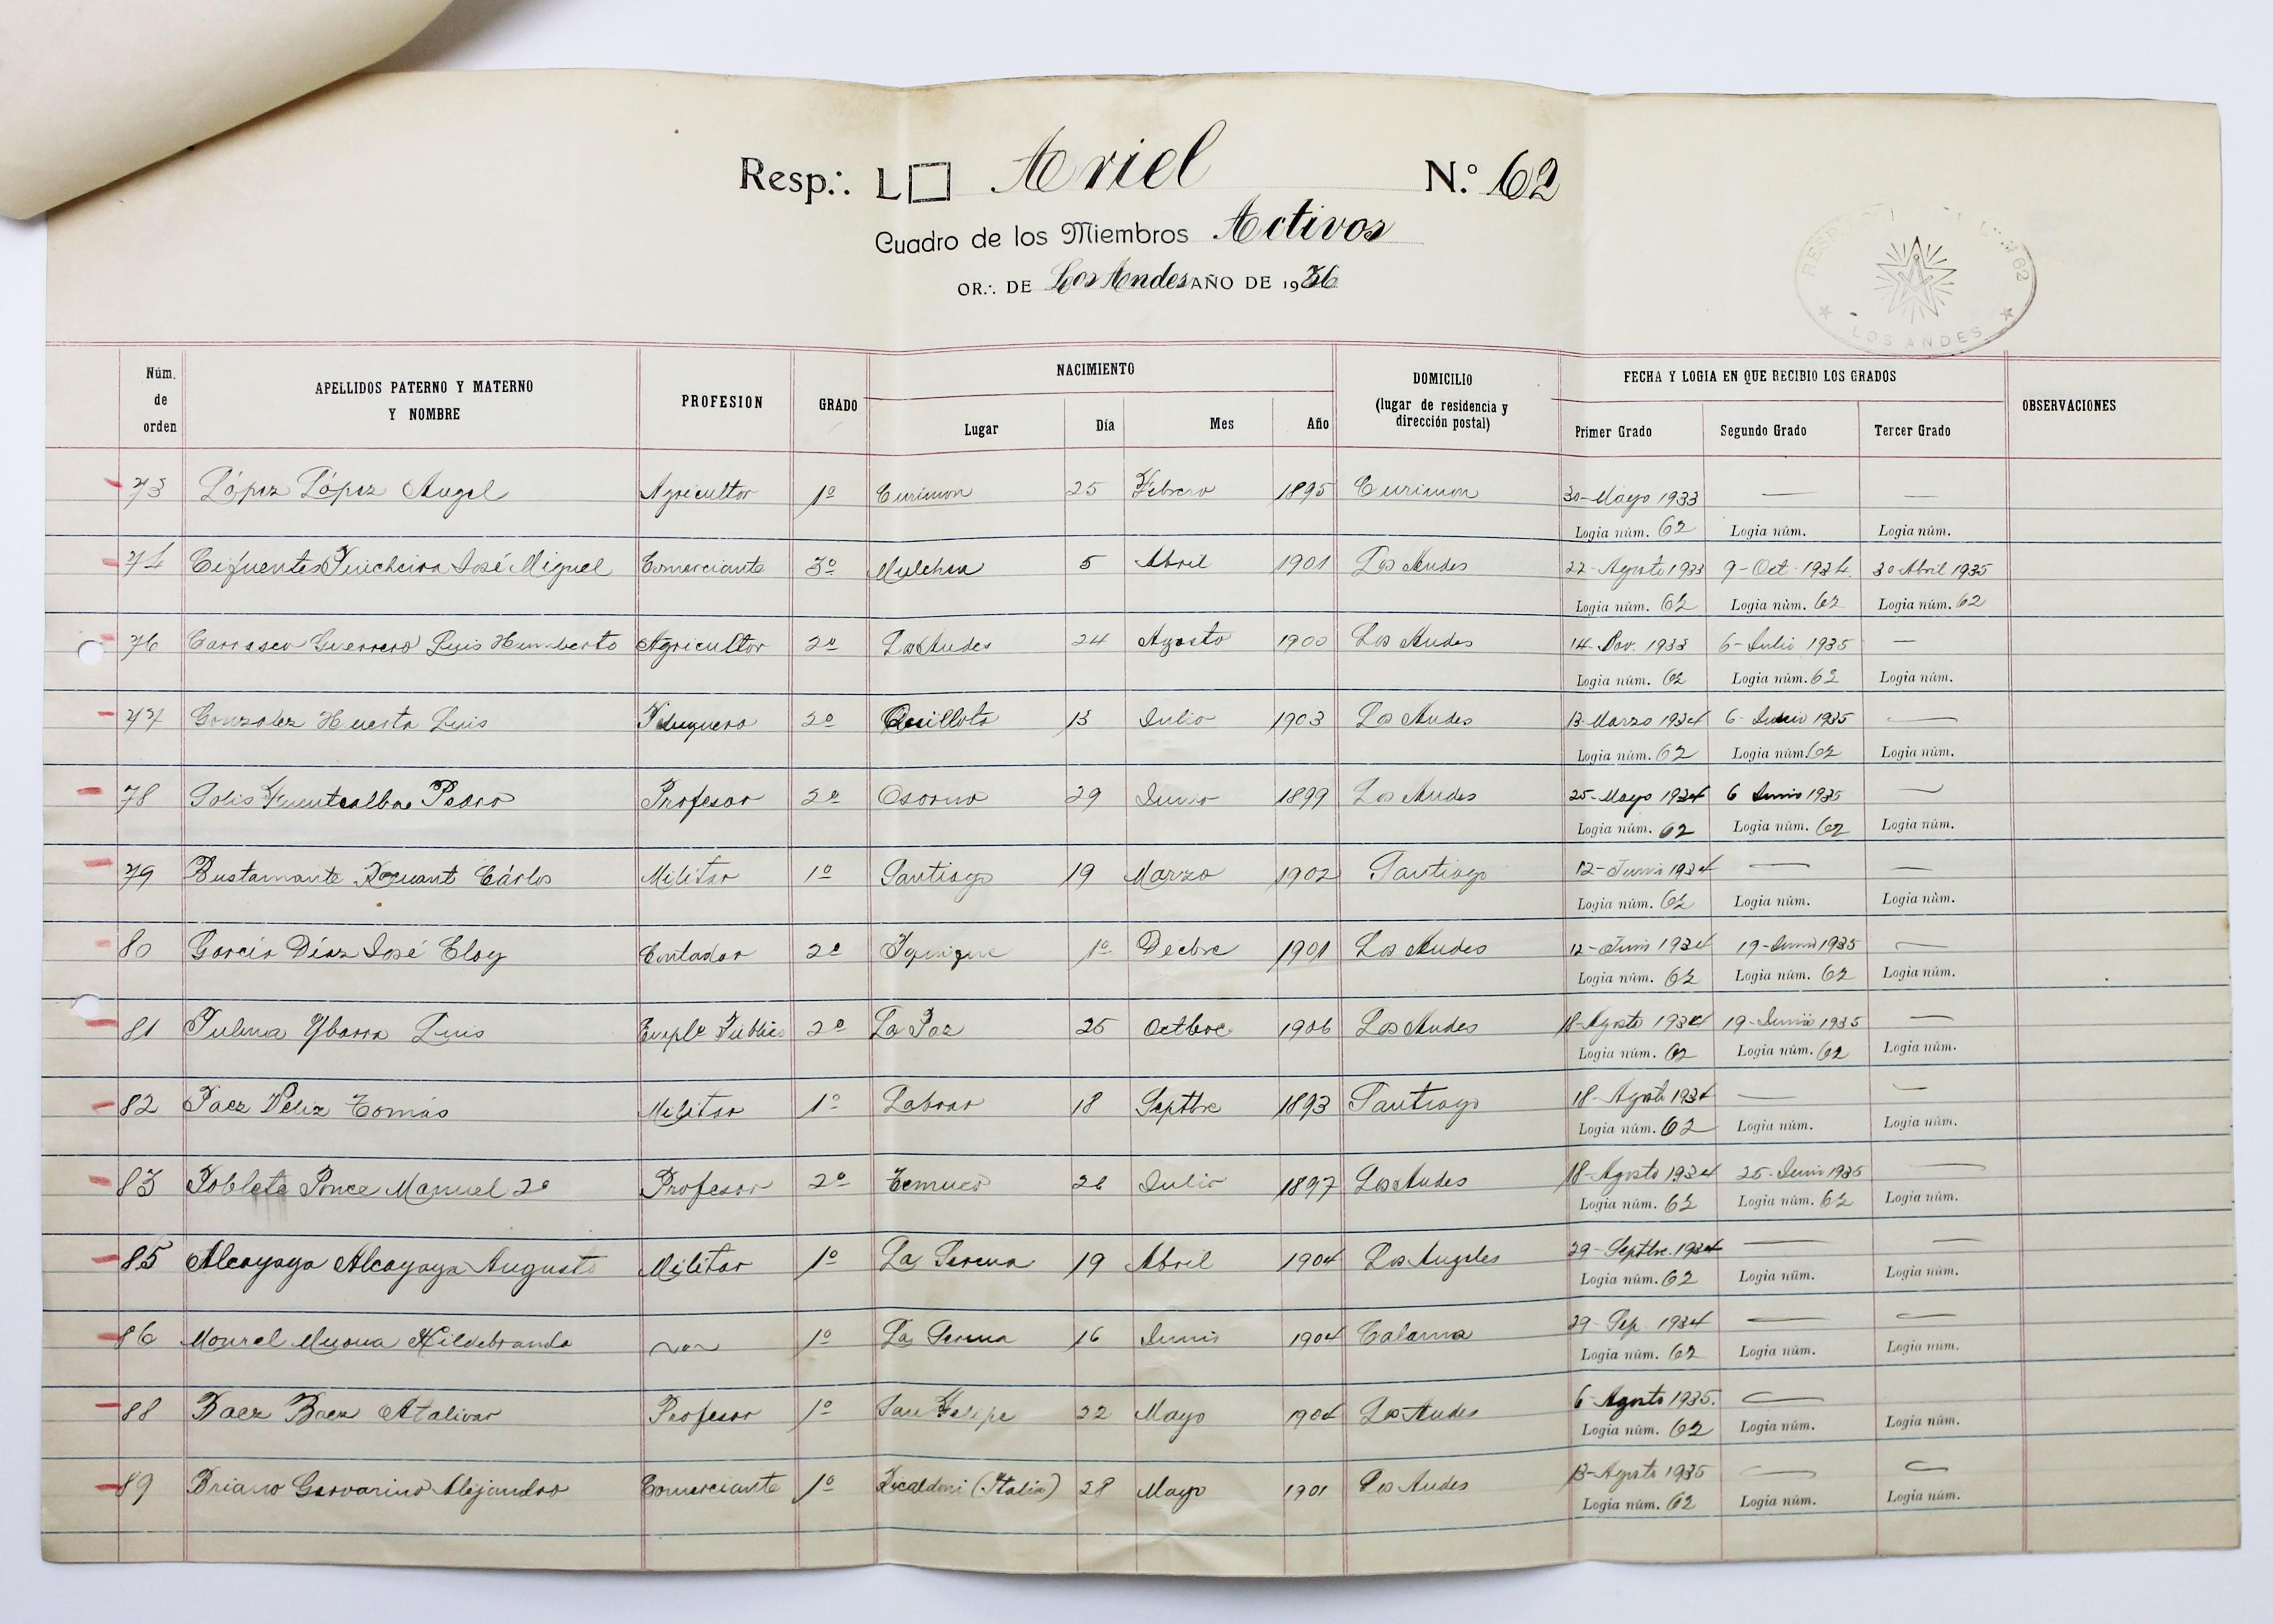 Resp∴ L□ Ariel N.º 62
Cuadro de los Miembros Activos
OR∴ DE Los Andes AÑO DE 1936
LOS ANDES
Núm. de orden
APELLIDOS PATERNO Y MATERNO Y NOMBRE
PROFESION
GRADO
NACIMIENTO
Lugar Día Mes Año
DOMICILIO
(lugar de residencia y dirección postal)
FECHA Y LOGIA EN QUE RECIBIO LOS GRADOS
Primer Grado Segundo Grado Tercer Grado
OBSERVACIONES
73 López López Angel Agricultor 1º Curimon 25 Febrero 1895 Curimon 30-Mayo 1933 — —
Logia núm. 62 Logia núm. Logia núm.
74 Cifuentes Pincheira José Miguel Comerciante 3º Mulchen 5 Abril 1901 Los Andes 22-Agosto 1933 9-Oct-1934. 30 Abril 1935
Logia núm. 62 Logia núm. 62 Logia núm. 62
76 Carrasco Guerrero Luis Humberto Agricultor 2º Los Andes 24 Agosto 1900 Los Andes 14-Nov. 1933 6-Julio 1935 —
Logia núm. 62 Logia núm. 62 Logia núm.
77 Gonzalez Huerta Luis 2º Quillota 13 Julio 1903 Los Andes 13-Marzo 1934 6- 1935 —
Logia núm. 62 Logia núm. 62 Logia núm.
78 Solis Fuentealba Pedro Profesor 2º Osorno 29 Junio 1899 Los Andes 25-Mayo 1934 6 Junio 1935 —
Logia núm. 62 Logia núm. 62 Logia núm.
79 Bustamante Cárlos Militar 1º Santiago 19 Marzo 1902 Santiago 12-Junio 1934 — —
Logia núm. 62 Logia núm. Logia núm.
80 García Díaz José Eloy Contador 2º Iquique 1º Dicbre 1901 Los Andes 12-Junio 1934 19-Junio 1935 —
Logia núm. 62 Logia núm. 62 Logia núm.
81 Ybarra Luis Emple Público 2º La Paz 25 Octbre 1906 Los Andes 18-Agosto 1934 19-Junio 1935 —
Logia núm. 62 Logia núm. 62 Logia núm.
82 Paez Veliz Tomás Militar 1º 18 Septbre 1893 Santiago 18-Agosto 1934 — —
Logia núm. 62 Logia núm. Logia núm.
83 Poblete Ponce Manuel 2º Profesor 2º Temuco Julio 1897 Los Andes 18-Agosto 1934 25-Junio 1935 —
Logia núm. 62 Logia núm. 62 Logia núm.
85 Alcayaga Alcayaga Augusto Militar 1º La Serena 19 Abril 1904 Los Angeles 29-Septbre. 1934 — —
Logia núm. 62 Logia núm. Logia núm.
86 Hildebrando 1º La Serena 16 Junio 1904 Calama 29-Sep. 1934 — —
Logia núm. 62 Logia núm. Logia núm.
88 Baez Baez Atalivar Profesor 1º San Felipe 22 Mayo 1904 Los Andes 6-Agosto 1935. —
Logia núm. 62 Logia núm. Logia núm.
89 Briano Alejandro Comerciante 1º (Italia) 28 Mayo 1901 Los Andes 13-Agosto 1935 — —
Logia núm. 62 Logia núm. Logia núm.